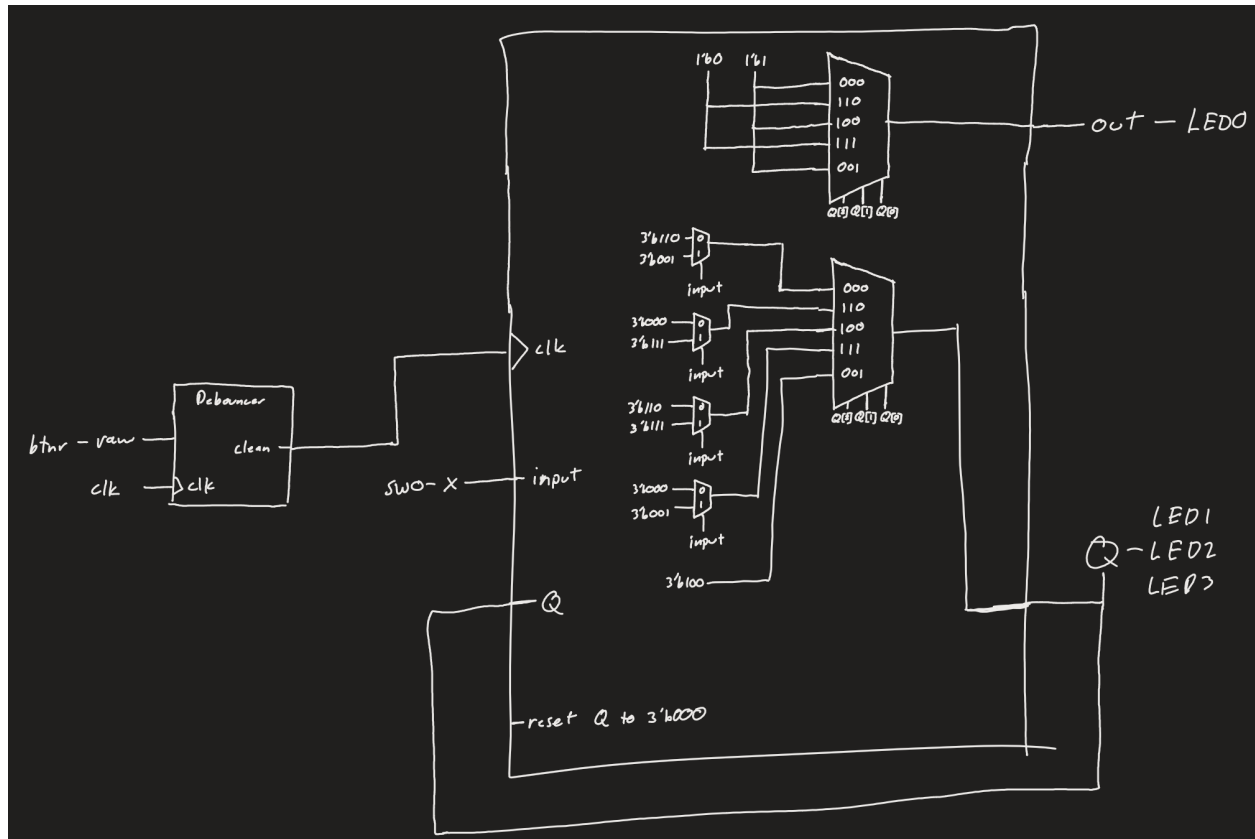 1'b0 1'b1
000
110
100
111
001
Q[2] Q[1] Q[0]
out - LED0
3'b110 0
3'b001 1
input
3'b000 0
3'b111 1
input
3'b110 0
3'b111 1
input
3'b000 0
3'b001 1
input
3'b100
000
110
100
111
001
Q[2] Q[1] Q[0]
clk
Debouncer
btnr - raw
clean
clk clk
sw0 - X
input
Q
reset Q to 3'b000
LED1
Q - LED2
LED3